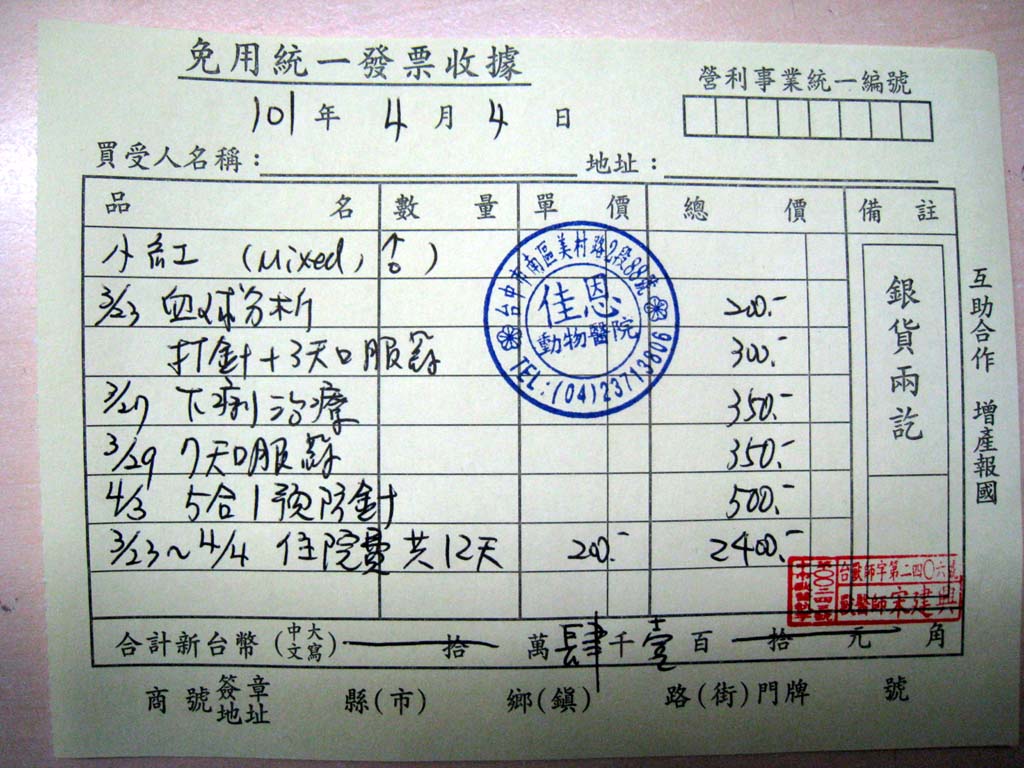 免用統一發票收據
營利事業統一編號
101年 4月 4日
買受人名稱： 地址：
品名 數量 單價 總價 備註
小紅 (Mixed, ♂)
3/23 血球分析 200.-
打針+3天口服藥 300.-
3/27 下痢治療 350.-
3/29 7天口服藥 350.-
4/3 5合1預防針 500.-
3/23~4/4 住院費 共12天 200.- 2400.-
銀貨兩訖
台中市南區美村路2段88號
佳恩
動物醫院
TEL:(04)23713806
台獸師字第二四〇六號
獸醫師宋建興
合計新台幣(中文大寫) 拾 萬肆千壹百 拾 元 角
商號簽章地址 縣(市) 鄉(鎮) 路(街)門牌 號
互助合作 增產報國